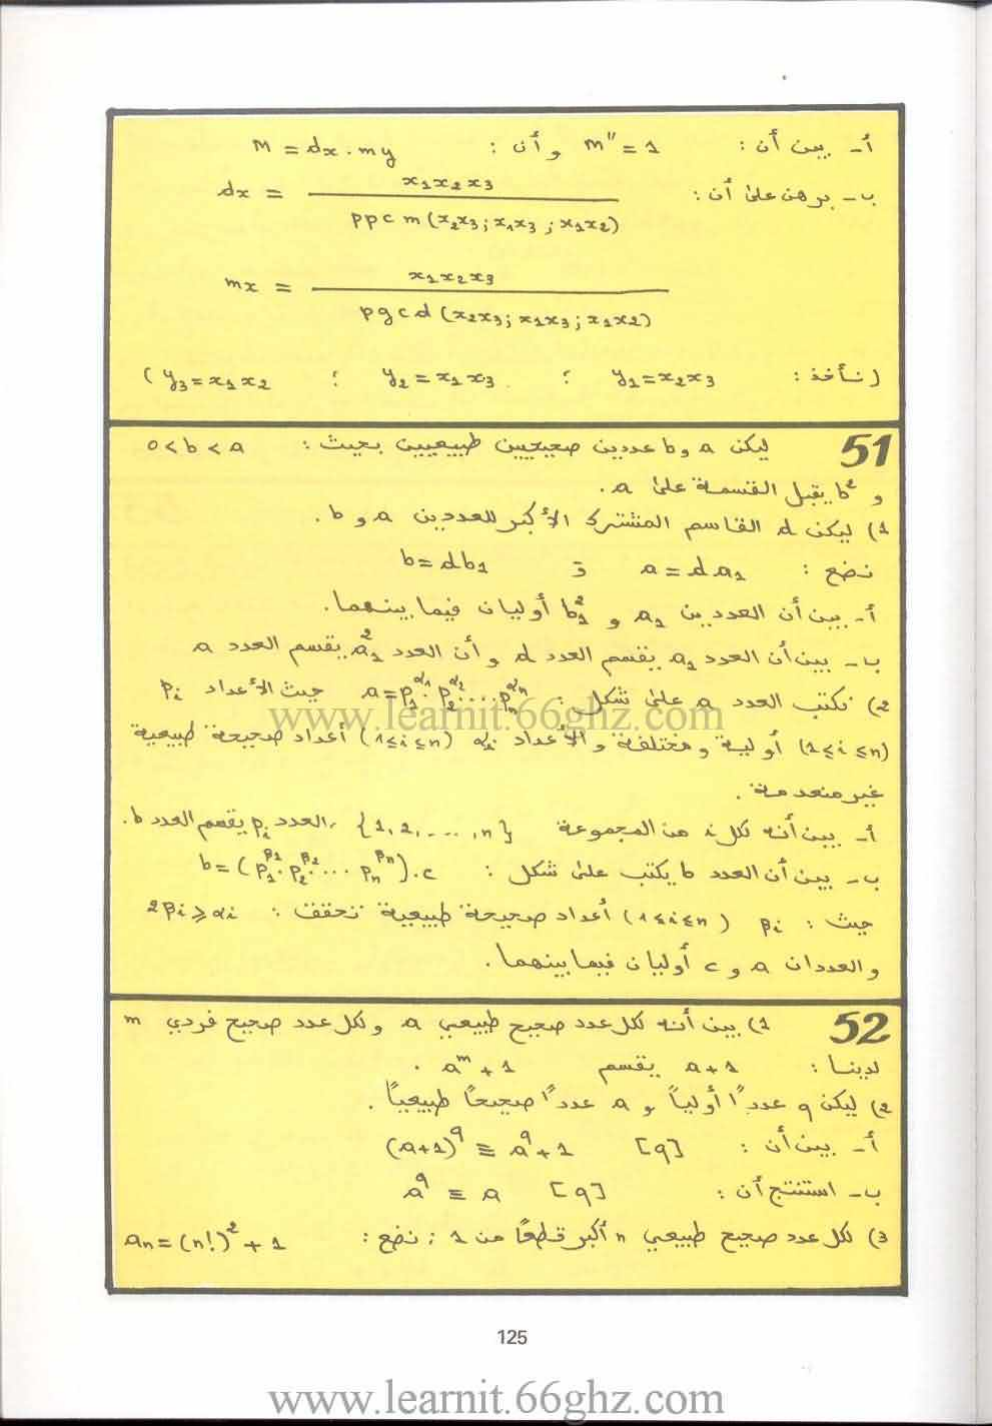 أ- بين أن : m" = 1 وأن : M = dx . my
ب- برهن على أن : dx = x₁x₂x₃ / ppcm(x₂x₃ ; x₁x₃ ; x₁x₂)
mx = x₁x₂x₃ / pgcd(x₂x₃ ; x₁x₃ ; x₁x₂)
(نأخذ : y₁=x₂x₃ ؛ y₂=x₁x₃ ؛ y₃=x₁x₂)
51 ليكن a و b عددين صحيحيين طبيعيين بحيث : 0<b<a
و b² يقبل القسمة على a .
1) ليكن d القاسم المشترك الأكبر للعددين a و b .
نضع : a = da₁ و b = db₁
أ- بين أن العددين a₁ و b₁² أوليان فيما بينهما .
ب- بين أن العدد a₁ يقسم العدد d وأن العدد a₁² يقسم العدد a
2) نكتب العدد a على شكل : a = p₁^α₁ . p₂^α₂ .... pₙ^αₙ حيث الأعداد pᵢ
(1≤i≤n) أولية ومختلفة والأعداد αᵢ (1≤i≤n) أعداد صحيحة طبيعية
غير منعدمة .
أ- بين أنه لكل i من المجموعة {1,2,....,n} ، العدد pᵢ يقسم العدد b .
ب- بين أن العدد b يكتب على شكل : b = (p₁^β₁ . p₂^β₂ .... pₙ^βₙ).c
حيث : βᵢ (1≤i≤n) أعداد صحيحة طبيعية تحقق : 2βᵢ ≥ αᵢ
والعددان a و c أوليان فيما بينهما .
52 1) بين أنه لكل عدد صحيح طبيعي a ولكل عدد صحيح فردي m
لدينا : a+1 يقسم a^m + 1 .
2) ليكن q عددًا أولياً و a عددًا صحيحًا طبيعيًا .
أ- بين أن : (a+1)^q ≡ a^q + 1 [q]
ب- استنتج أن : a^q ≡ a [q]
3) لكل عدد صحيح طبيعي n أكبر قطعًا من 1 ؛ نضع : aₙ = (n!)² + 1
125
www.learnit.66ghz.com
www.learnit.66ghz.com